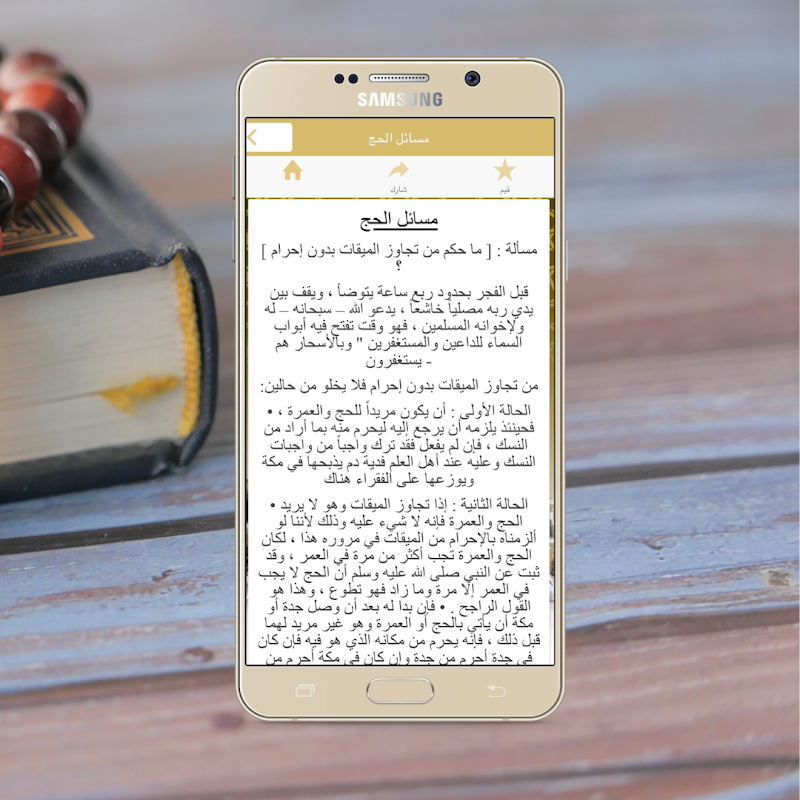 SAMSUNG
مسائل الحج
شارك
قيم
مسائل الحج
مسألة : [ ما حكم من تجاوز الميقات بدون إحرام ]
؟
قبل الفجر بحدود ربع ساعة يتوضأ ، ويقف بين
يدي ربه مصلياً خاشعاً ، يدعو الله – سبحانه – له
ولإخوانه المسلمين ، فهو وقت تفتح فيه أبواب
السماء للداعين والمستغفرين " وبالأسحار هم
يستغفرون -
من تجاوز الميقات بدون إحرام فلا يخلو من حالين:
الحالة الأولى : أن يكون مريداً للحج والعمرة ، •
فحينئذ يلزمه أن يرجع إليه ليحرم منه بما أراد من
النسك ، فإن لم يفعل فقد ترك واجباً من واجبات
النسك وعليه عند أهل العلم فدية دم يذبحها في مكة
ويوزعها على الفقراء هناك
الحالة الثانية : إذا تجاوز الميقات وهو لا يريد •
الحج والعمرة فإنه لا شيء عليه وذلك لأننا لو
ألزمناه بالإحرام من الميقات في مروره هذا ، لكان
الحج والعمرة تجب أكثر من مرة في العمر ، وقد
ثبت عن النبي صلى الله عليه وسلم أن الحج لا يجب
في العمر إلا مرة وما زاد فهو تطوع ، وهذا هو
القول الراجح . • فإن بدا له بعد أن وصل جدة أو
مكة أن يأتي بالحج أو العمرة وهو غير مريد لهما
قبل ذلك ، فإنه يحرم من مكانه الذي هو فيه فإن كان
في جدة أحرم من جدة وإن كان في مكة أحرم من